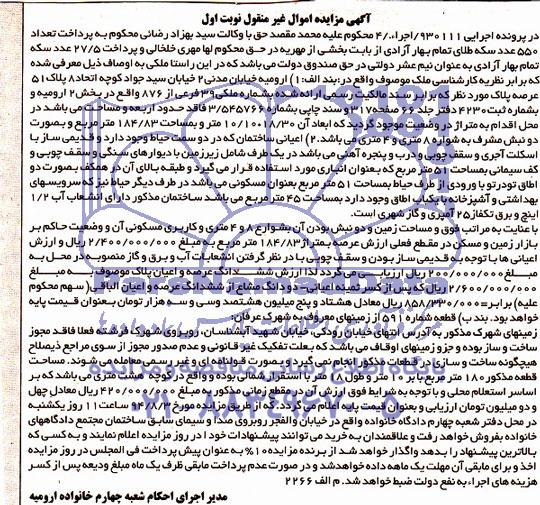 آگهی مزایده اموال غیر منقول نوبت اول
در پرونده اجرایی ۹۳۰۱۱۱/اجراء/۴ محکوم علیه محمد مقصد حق با وکالت سید بهزاد رضائی محکوم به پرداخت تعداد
۵۵۰ عدد سکه طلای تمام بهار آزادی از بابت بخشی از مهریه در حق محکوم لها مهری خلخالی و پرداخت ۲۷/۵ عدد سکه
تمام بهار آزادی به عنوان نیم عشر دولتی در حق صندوق دولت می باشد که در این راستا ملکی به اوصاف ذیل معرفی شده
که برابر نظریه کارشناسی ملک موصوف واقع در: بند الف: ۱) ارومیه خیابان مدنی ۲ خیابان سید جواد کوچه اتحاد ۸ پلاک ۵۱
عرصه پلاک مورد نظر که برابر سند مالکیت رسمی ارائه شده بشماره ملکی ۳۹ فرعی از ۸۷۶ واقع در بخش ۲ ارومیه و
بشماره ثبت ۴۲۳۰ دفتر جلد ۶۶ صفحه ۳۱۷ و سند چاپی بشماره ۳/۵۴۵۷۶۶ فاقد حدود اربعه و مساحت می باشد در
محل اقدام به متراژ در وضعیت موجود گردید که ابعاد آن ۱۸/۳۰*۱۰/۱۰ متر و بمساحت ۱۸۴/۸۳ متر مربع و بصورت
دو نبش مشرف به شواره ۸ متری و ۴ متری می باشد. ۲) اعیانی ساختمان که در دو سمت حیاط وجود دارد و قدیمی ساز با
اسکلت آجری و سقف چوبی و درب و پنجره آهنی می باشد در یک طرف شامل زیرزمین با دیوارهای سنگی و سقف چوبی و
کف سیمانی بمساحت ۵۱ متر مربع که بعنوان انباری مورد استفاده قرار می گیرد و طبقه بالای آن در همکف بصورت دو
اطاق تودرتو با ورودی از طرف حیاط بمساحت ۵۱ متر مربع بعنوان مسکونی می باشد در طرف دیگر حیاط نیز که سرویسهای
بهداشتی و آشپزخانه با یکباب اطاق وجود دارد بمساحت ۴۵ متر مربع می باشد ساختمان مذکور دارای انشعاب آب ۱/۲
اینچ و برق تکفاز ۲۵ آمپری و گاز شهری است.
با عنایت به مراتب فوق و مساحت زمین و دو نبش بودن آن بشوارع ۸ و ۴ متری و کاربری مسکونی آن و وضعیت حاکم بر
بازار زمین و مسکن در مقطع فعلی ارزش عرصه بمتراژ ۱۸۴/۸۳ متر مربع به مبلغ ۲/۴۰۰/۰۰۰/۰۰۰ ریال و ارزش
اعیانی ها با توجه به قدیمی ساز بودن و سقف چوبی با در نظر گرفتن انشعابات آب و برق و گاز منصوب در محل به
مبلغ ۲۰۰/۰۰۰/۰۰۰ ریال ارزیابی می گردد لذا ارزش ششدانگ عرصه و اعیان پلاک موصوف به مبلغ
۲/۶۰۰/۰۰۰/۰۰۰ ریال که پس از کسر ثمنیه اعیانی، دو دانگ مشاع از ششدانگ عرصه و اعیان الباقی (سهم محکوم
علیه) برابر=۸۵۸/۳۳۰/۰۰۰ ریال معادل هشتاد و پنج میلیون هشتصد وسی و سه هزار تومان بعنوان قیمت پایه
خواهد بود. بند ب) قطعه شماره ۵۹۱ از زمینهای معروف به شهرک عرفان:
زمینهای شهرک مذکور به آدرس انتهای خیابان رودکی، خیابان شهید آبشناسان، روبروی شهرک فرشته فعلا فاقد مجوز
ساخت و ساز بوده و جزو زمینهای اوقاف می باشد که بعلت تفکیک غیر قانونی و عدم صدور مجوز از سوی مراجع ذیصلاح
هیچگونه ساخت و سازی در قطعات مذکور انجام نمی گیرد و بصورت قولنامه ای و غیر رسمی معامله می شوند. مساحت
قطعه مذکور ۱۸۰ متر مربع با بر ۱۰ متر و طول ۱۸ متر با استقرار شمالی بوده و واقع در کوچه هشت متری می باشد که بر
اساس استعلام محلی و با توجه به شرایط فوق ارزش آن در مقطع زمانی مذکور به مبلغ ۴۲۰/۰۰۰/۰۰۰ ریال معادل چهل
و دو میلیون تومان ارزیابی و بعنوان قیمت پایه اعلام می گردد. که از طریق مزایده مورخ ۱۴/۸/۳ ساعت ۱۱ روز یکشنبه
در محل دفتر شعبه چهارم دادگاه خانواده واقع در خیابان والفجر روبروی صدا و سیمای سابق ساختمان مجتمع دادگاههای
خانواده بفروش خواهد رفت و علاقمندان به خرید می توانند پیشنهادات خود را در روز مزایده اعلام نمایند و به کسی که
بالاترین پیشنهاد را بدهد واگذار خواهد شد از برنده مزایده ۱۰% به عنوان پیش پرداخت فی المجلس در روز مزایده
اخذ و برای مابقی آن مهلت یک ماهه داده خواهد شد و در صورت عدم پرداخت مابقی ظرف یک ماه مبلغ ودیعه پس از کسر
هزینه های اجراء به نفع دولت ضبط خواهد شد. م الف ۲۲۶۶
مدیر اجرای احکام شعبه چهارم خانواده ارومیه